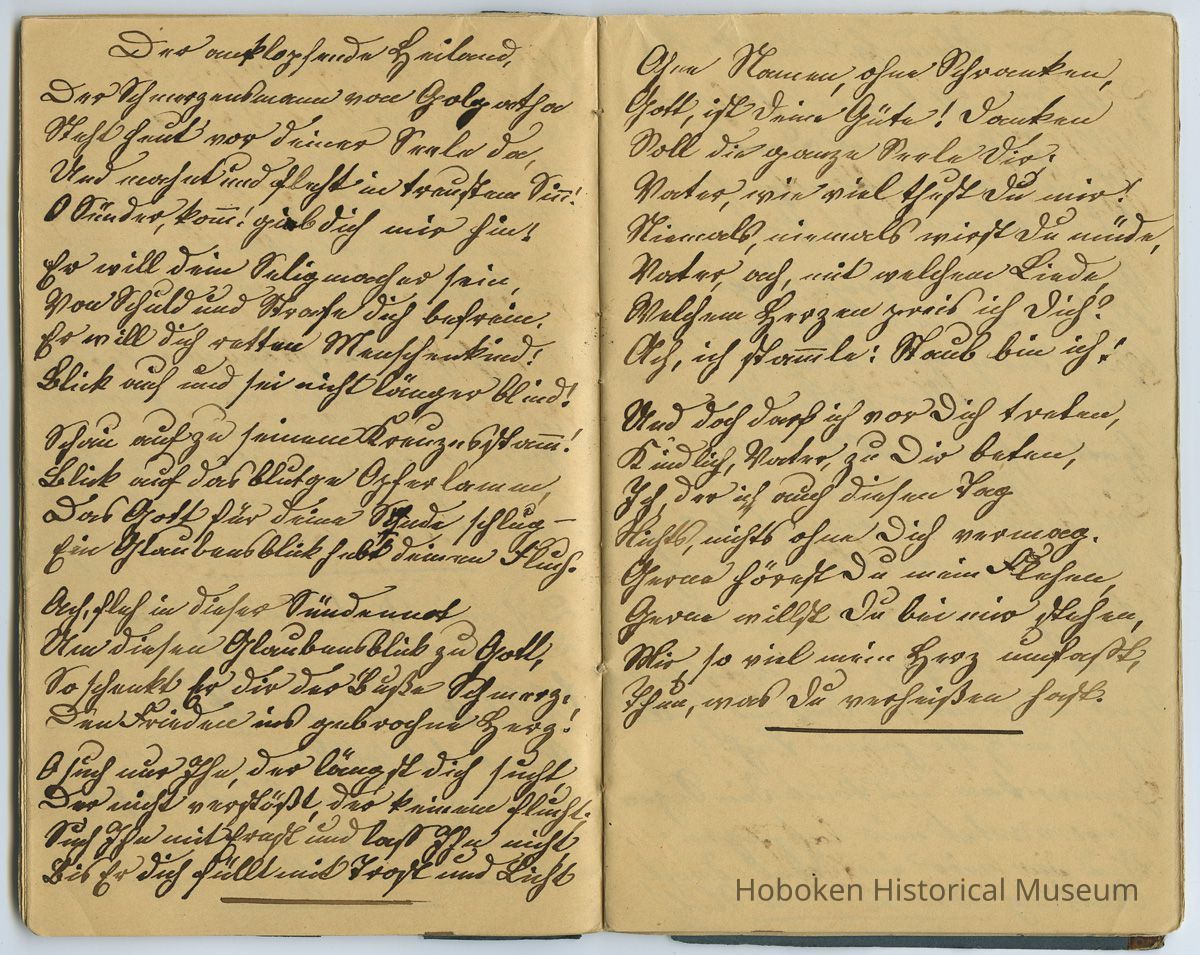 Der anklopfende Heiland.
Der Schmerzensmann von Golgatha
Steht heut vor deiner Seele da,
Und mahnt und fleht in treustem Sinn:
O Sünder, komm! gieb dich mir hin!
Er will dein Seligmacher sein,
Von Schuld und Strafe dich befrein.
Er will dich retten Menschenkind!
Blick auf und sei nicht länger blind!
Schau auf zu seinem Kreuzesstamm!
Blick auf das blutge Opferlamm,
Das Gott für deine Sünde schlug –
Ein Glaubensblick hebt deinen Fluch.
Ach, fleh in dieser Sündennot
Um diesen Glaubensblick zu Gott,
So schenkt Er dir der Buße Schmerz,
Den Frieden ins gebrochne Herz!
O such nur Ihn, der längst dich sucht,
Der nicht verstößt, der keinem flucht;
Such Ihn mit Ernst und lass Ihn nicht
Bis Er dich füllt mit Trost und Licht
Ohne Namen, ohne Schranken,
Gott, ist deine Güte! Danken
Soll die ganze Seele Dir.
Vater, wie viel thust Du mir!
Niemals, niemals wirst Du müde,
Vater, ach, mit welchem Liede,
Welchem Herzen preis ich Dich?
Ach, ich stammle: Staub bin ich!
Und doch darf ich vor Dich treten,
Kindlich, Vater, zu Dir beten,
Ich, der ich auch diesen Tag
Nichts, nichts ohne Dich vermag.
Gerne hörest Du mein Flehen,
Gerne willst Du bei mir stehen,
Mir, so viel mein Herz umfasst,
Thun, was Du verheißen hast.
Hoboken Historical Museum